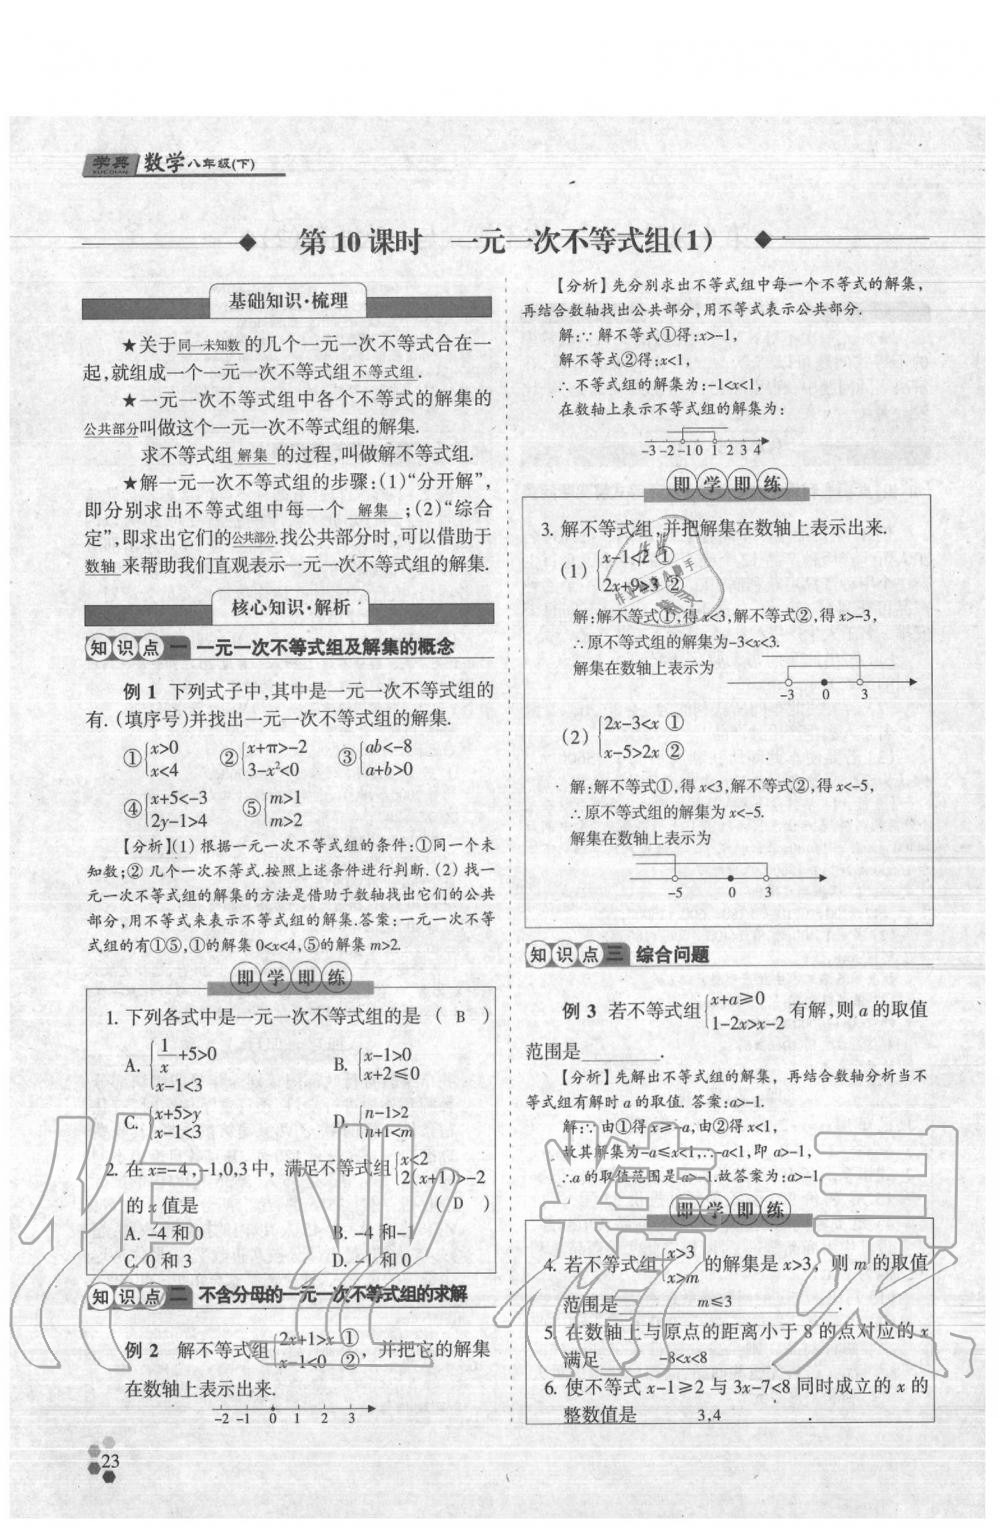 学典 数学八年级(下)
XUEDIAN
第10课时 一元一次不等式组(1)
基础知识·梳理
★关于同一未知数的几个一元一次不等式合在一
起,就组成一个一元一次不等式组不等式组.
★一元一次不等式组中各个不等式的解集的
公共部分叫做这个一元一次不等式组的解集.
求不等式组 解集 的过程,叫做解不等式组.
★解一元一次不等式组的步骤:(1)“分开解”,
即分别求出不等式组中每一个 解集 ;(2)“综合
定”,即求出它们的公共部分.找公共部分时,可以借助于
数轴 来帮助我们直观表示一元一次不等式组的解集.
核心知识·解析
知识点一 一元一次不等式组及解集的概念
例1 下列式子中,其中是一元一次不等式组的
有.(填序号)并找出一元一次不等式组的解集.
① {x>0 ② {x+π>-2 ③ {ab<-8
x<4 3-x²<0 a+b>0
④ {x+5<-3 ⑤ {m>1
2y-1>4 m>2
【分析】(1) 根据一元一次不等式组的条件:①同一个未
知数;② 几个一次不等式.按照上述条件进行判断.(2) 找一
元一次不等式组的解集的方法是借助于数轴找出它们的公共
部分,用不等式来表示不等式组的解集.答案:一元一次不等
式组的有①⑤,①的解集0<x<4,⑤的解集m>2.
即学即练
1. 下列各式中是一元一次不等式组的是 ( B )
A. {1/x+5>0 B. {x-1>0
x-1<3 x+2≤0
C. {x+5>y D. {n-1>2
x-1<3 n+1<m
2. 在x=-4,-1,0,3中, 满足不等式组 {x<2
2(x+1)>-2
的x值是 ( D )
A. -4和0 B. -4和-1
C. 0和3 D. -1和0
知识点二 不含分母的一元一次不等式组的求解
例2 解不等式组 {2x+1>x ①
x-1<0 ② , 并把它的解集
在数轴上表示出来.
-2 -1 0 1 2 3
23
【分析】先分别求出不等式组中每一个不等式的解集,
再结合数轴找出公共部分,用不等式表示公共部分.
解:∵ 解不等式①得:x>-1,
解不等式②得:x<1,
∴ 不等式组的解集为:-1<x<1,
在数轴上表示不等式组的解集为:
-3 -2 -1 0 1 2 3 4
即学即练
3. 解不等式组,并把解集在数轴上表示出来.
(1) {x-1<2 ①
2x+9>3 ②
解:解不等式①,得x<3,解不等式②,得x>-3,
∴原不等式组的解集为-3<x<3.
解集在数轴上表示为
-3 0 3
(2) {2x-3<x ①
x-5>2x ②
解:解不等式①,得x<3,解不等式②,得x<-5,
∴原不等式组的解集为x<-5.
解集在数轴上表示为
-5 0 3
知识点三 综合问题
例3 若不等式组 {x+a≥0
1-2x>x-2 有解,则a的取值
范围是 .
【分析】先解出不等式组的解集, 再结合数轴分析当不
等式组有解时a的取值. 答案:a>-1.
解:∵由①得x≥-a,由②得x<1,
故其解集为-a≤x<1,∴-a<1,即a>-1,
∴a的取值范围是a>-1.故答案为:a>-1.
即学即练
4. 若不等式组 {x>3
x>m 的解集是x>3, 则m的取值
范围是 m≤3 .
5. 在数轴上与原点的距离小于8的点对应的x
满足 -8<x<8 .
6. 使不等式x-1≥2与3x-7<8同时成立的x的
整数值是 3,4 .